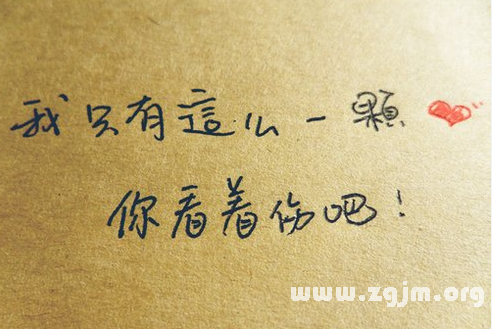 我只有這么一顆❤
你看着伤吧!
www.zgjm.org